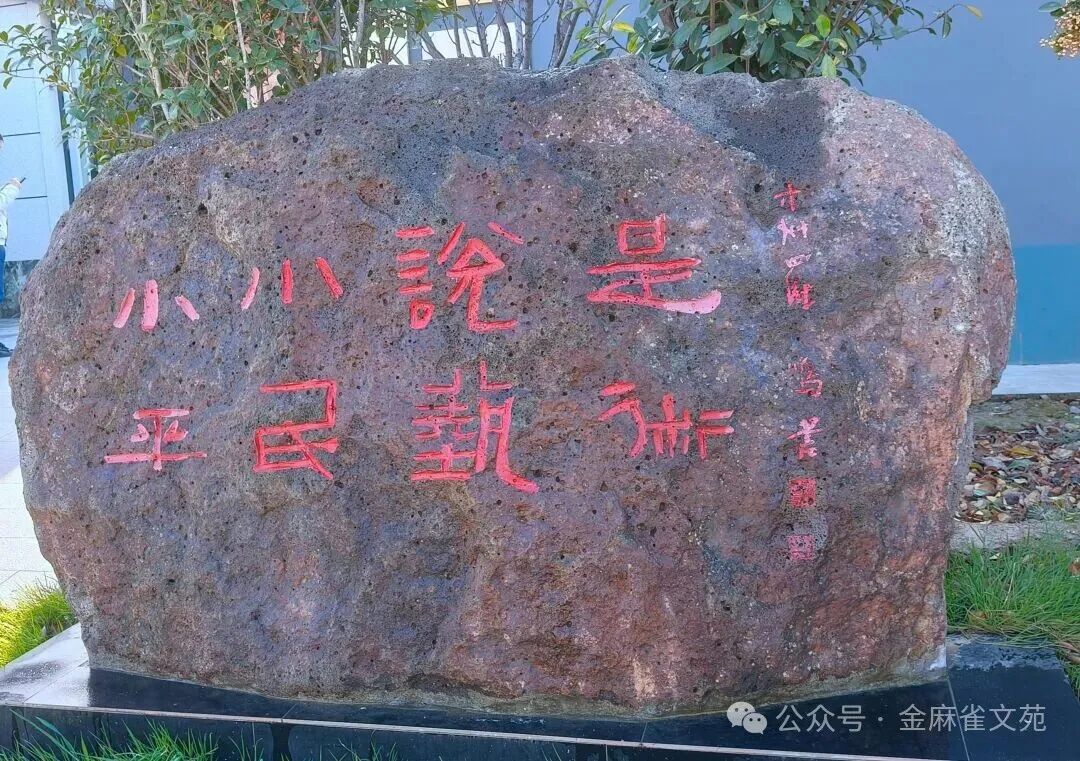 小小說是
平民藝術
公众号 · 金麻雀文苑